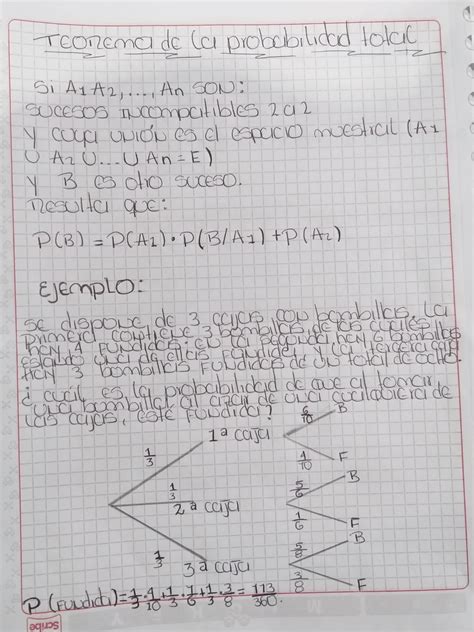 Teorema de la probabilidad total
Si A1 A2, ..., An son:
sucesos incompatibles 2 a 2
y cuya unión es el espacio muestral (A1
U A2 U... U An = E)
y B es otro suceso.
Resulta que:
P(B) = P(A1) · P(B/A1) + P(A2)
Ejemplo:
Se dispone de 3 cajas con bombillas. La
primera contiene 3 bombillas de los cuales
hay 4 fundidas; en la segunda hay 6 bombillas
estando una de ellas fundida, y la tercera caja
hay 3 bombillas fundidas de un total de ocho.
¿cuál es la probabilidad de que al tomar
una bombilla al azar de una cualquiera de
las cajas, esté fundida?
1/3 1ª caja 6/10 B
4/10 F
1/3 2ª caja 5/6 B
1/6 F
1/3 3ª caja 5/8 B
3/8 F
P (Fundida) = 1/3 · 4/10 + 1/3 · 1/6 + 1/3 · 3/8 = 113/360.
Scribe